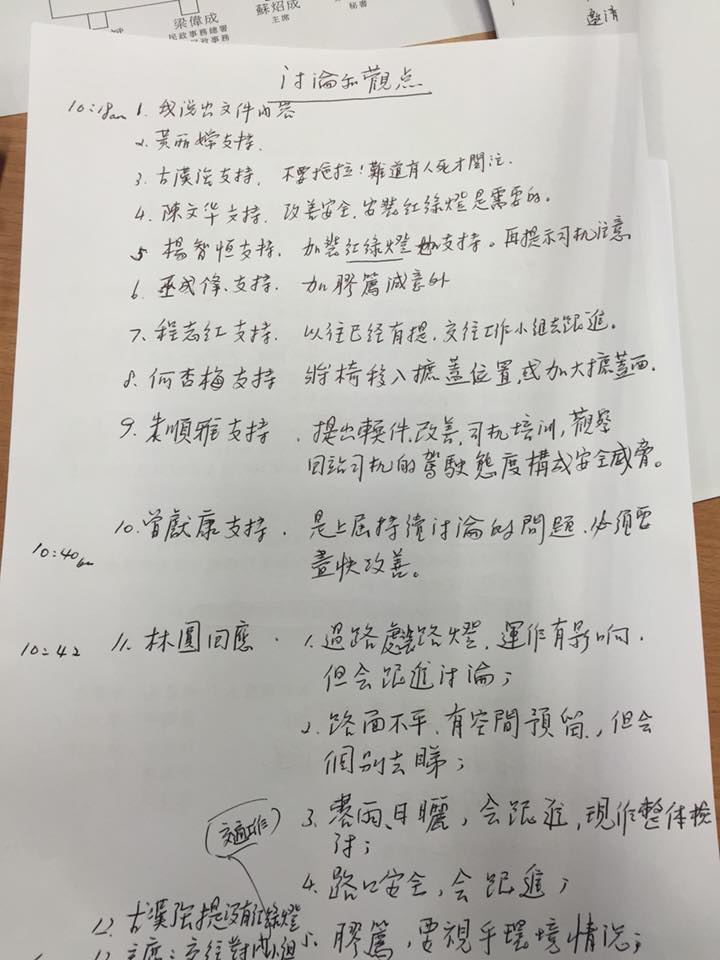 梁偉成
民政事務總署
蘇炤成
主席
秘書
邀請
討論和觀点
10:18am 1. 我說出文件內容
2. 黃丽嫦支持.
3. 古漢强支持, 不要拖拉!難道有人死才関注.
4. 陳文华支持. 改善安全,安裝紅綠燈是需要的.
5 楊智恒支持. 加裝紅綠燈 支持。再提示司机注意
6. 巫成鋒.支持. 加膠篱减意外
7. 程志红支持. 以往已经有提.交往工作小組去跟進.
8. 何杏梅支持 將椅移入摭蓋位置,或加大摭蓋面.
9. 朱順雅支持. 提出軟件.改善.司机培训,觀察
回站司机的駕駛態度構成安全威脅。
10. 曾獻康支持. 是上屆持續讨論的問題.必须要
10:40am 盡快改善。
10:42 11. 林圓回應. 1. 過路處 路燈. 運作有影响.
但会跟進讨論;
2. 路面不平.有空間預留,但会
個别去睇;
3. 雨、日曬,会跟進,現作整体檢
讨;
4. 路口安全,会跟進;
12. 古漢强提没有红綠燈
膠篱,要視乎環境情況;
主席:交往 小組